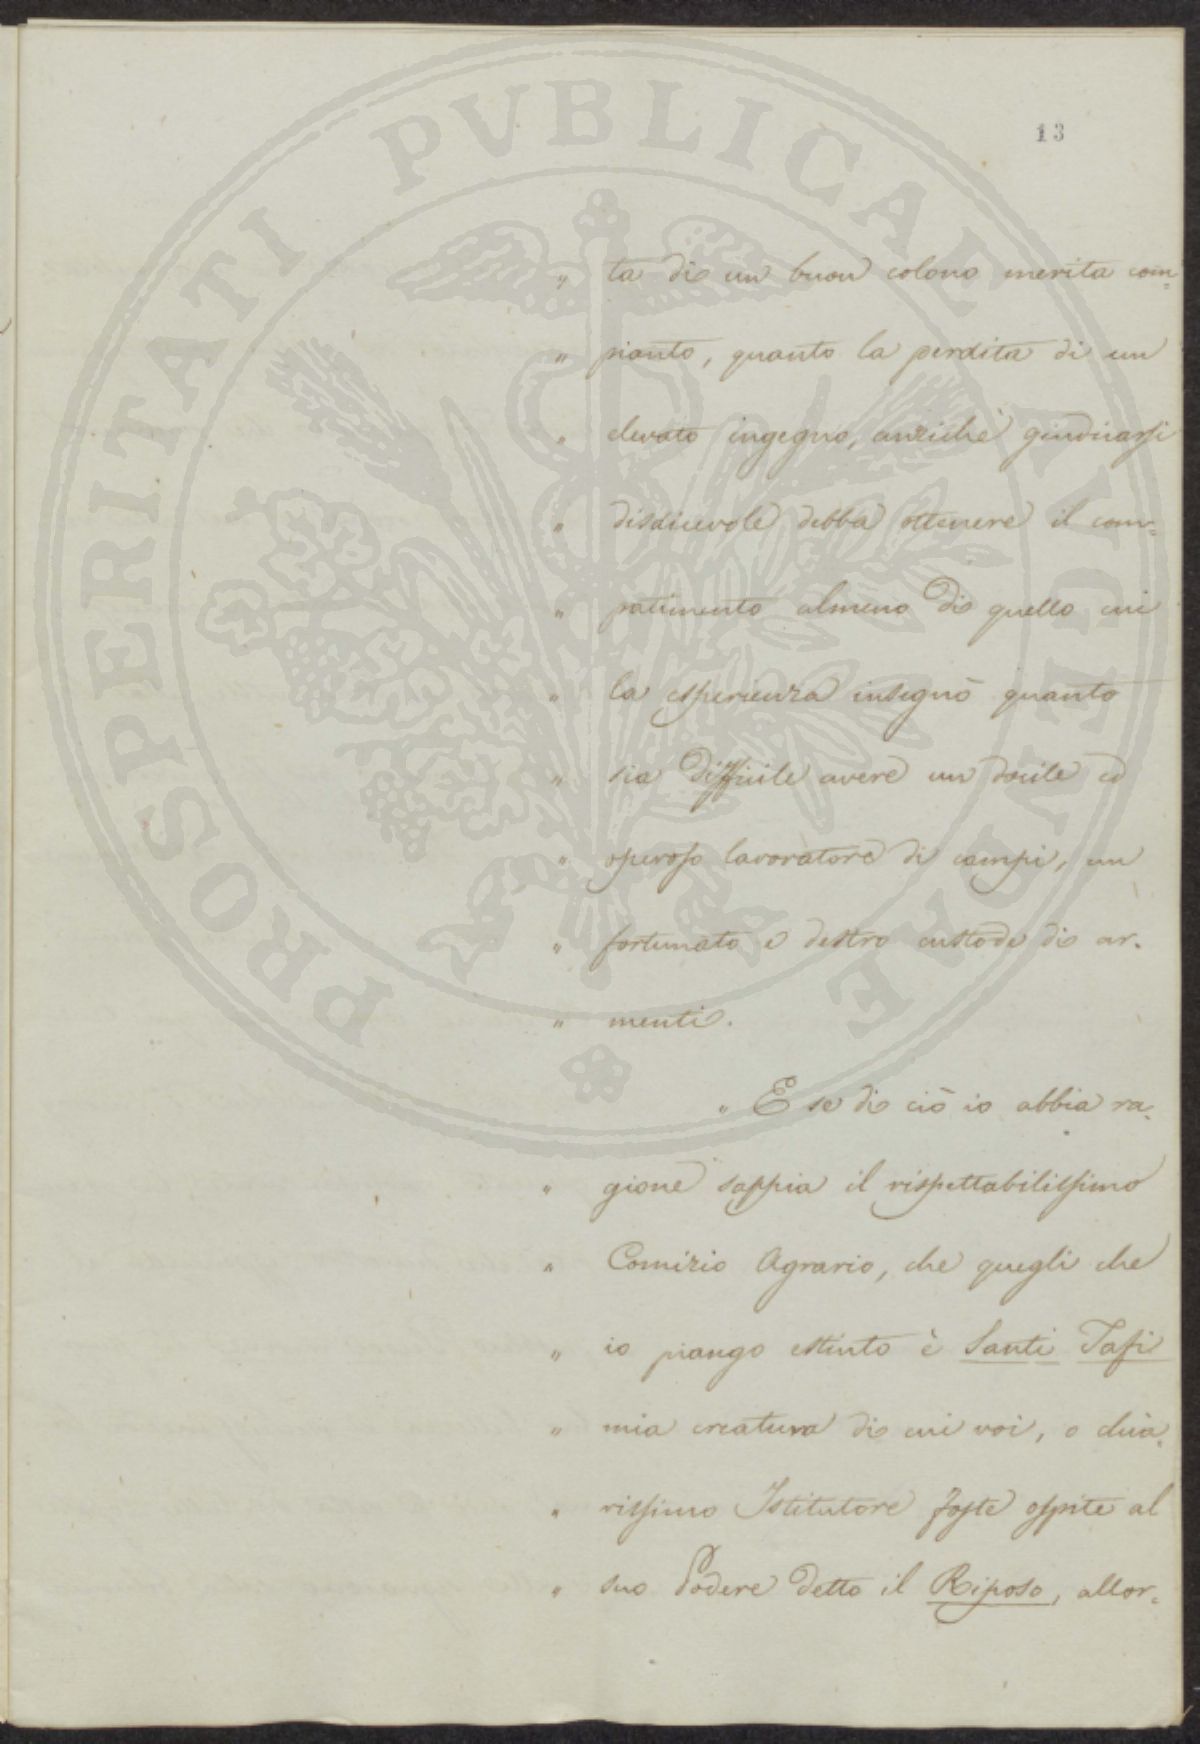 PROSPERITATI PUBLICAE AUGENDAE
13
" ta di un buon colono merita com=
" pianto, quanto la perdita di un
" elevato ingegno, anziche giudicarsi
" disdicevole debba ottenere il com=
" patimento almeno di quello cui
" la esperienza insegnò quanto
" sia difficile avere un docile ed
" operoso lavoratore di campi, un
" fortunato e destro custode di ar=
" menti.
" E se di ciò io abbia ra=
" gione sappia il rispettabilissimo
" Comizio Agrario, che quegli che
" io piango estinto è Santi Tafi
" mia creatura di cui voi, o chia=
" rissimo Istitutore foste ospite al
" suo Podere detto il Riposo, allor=